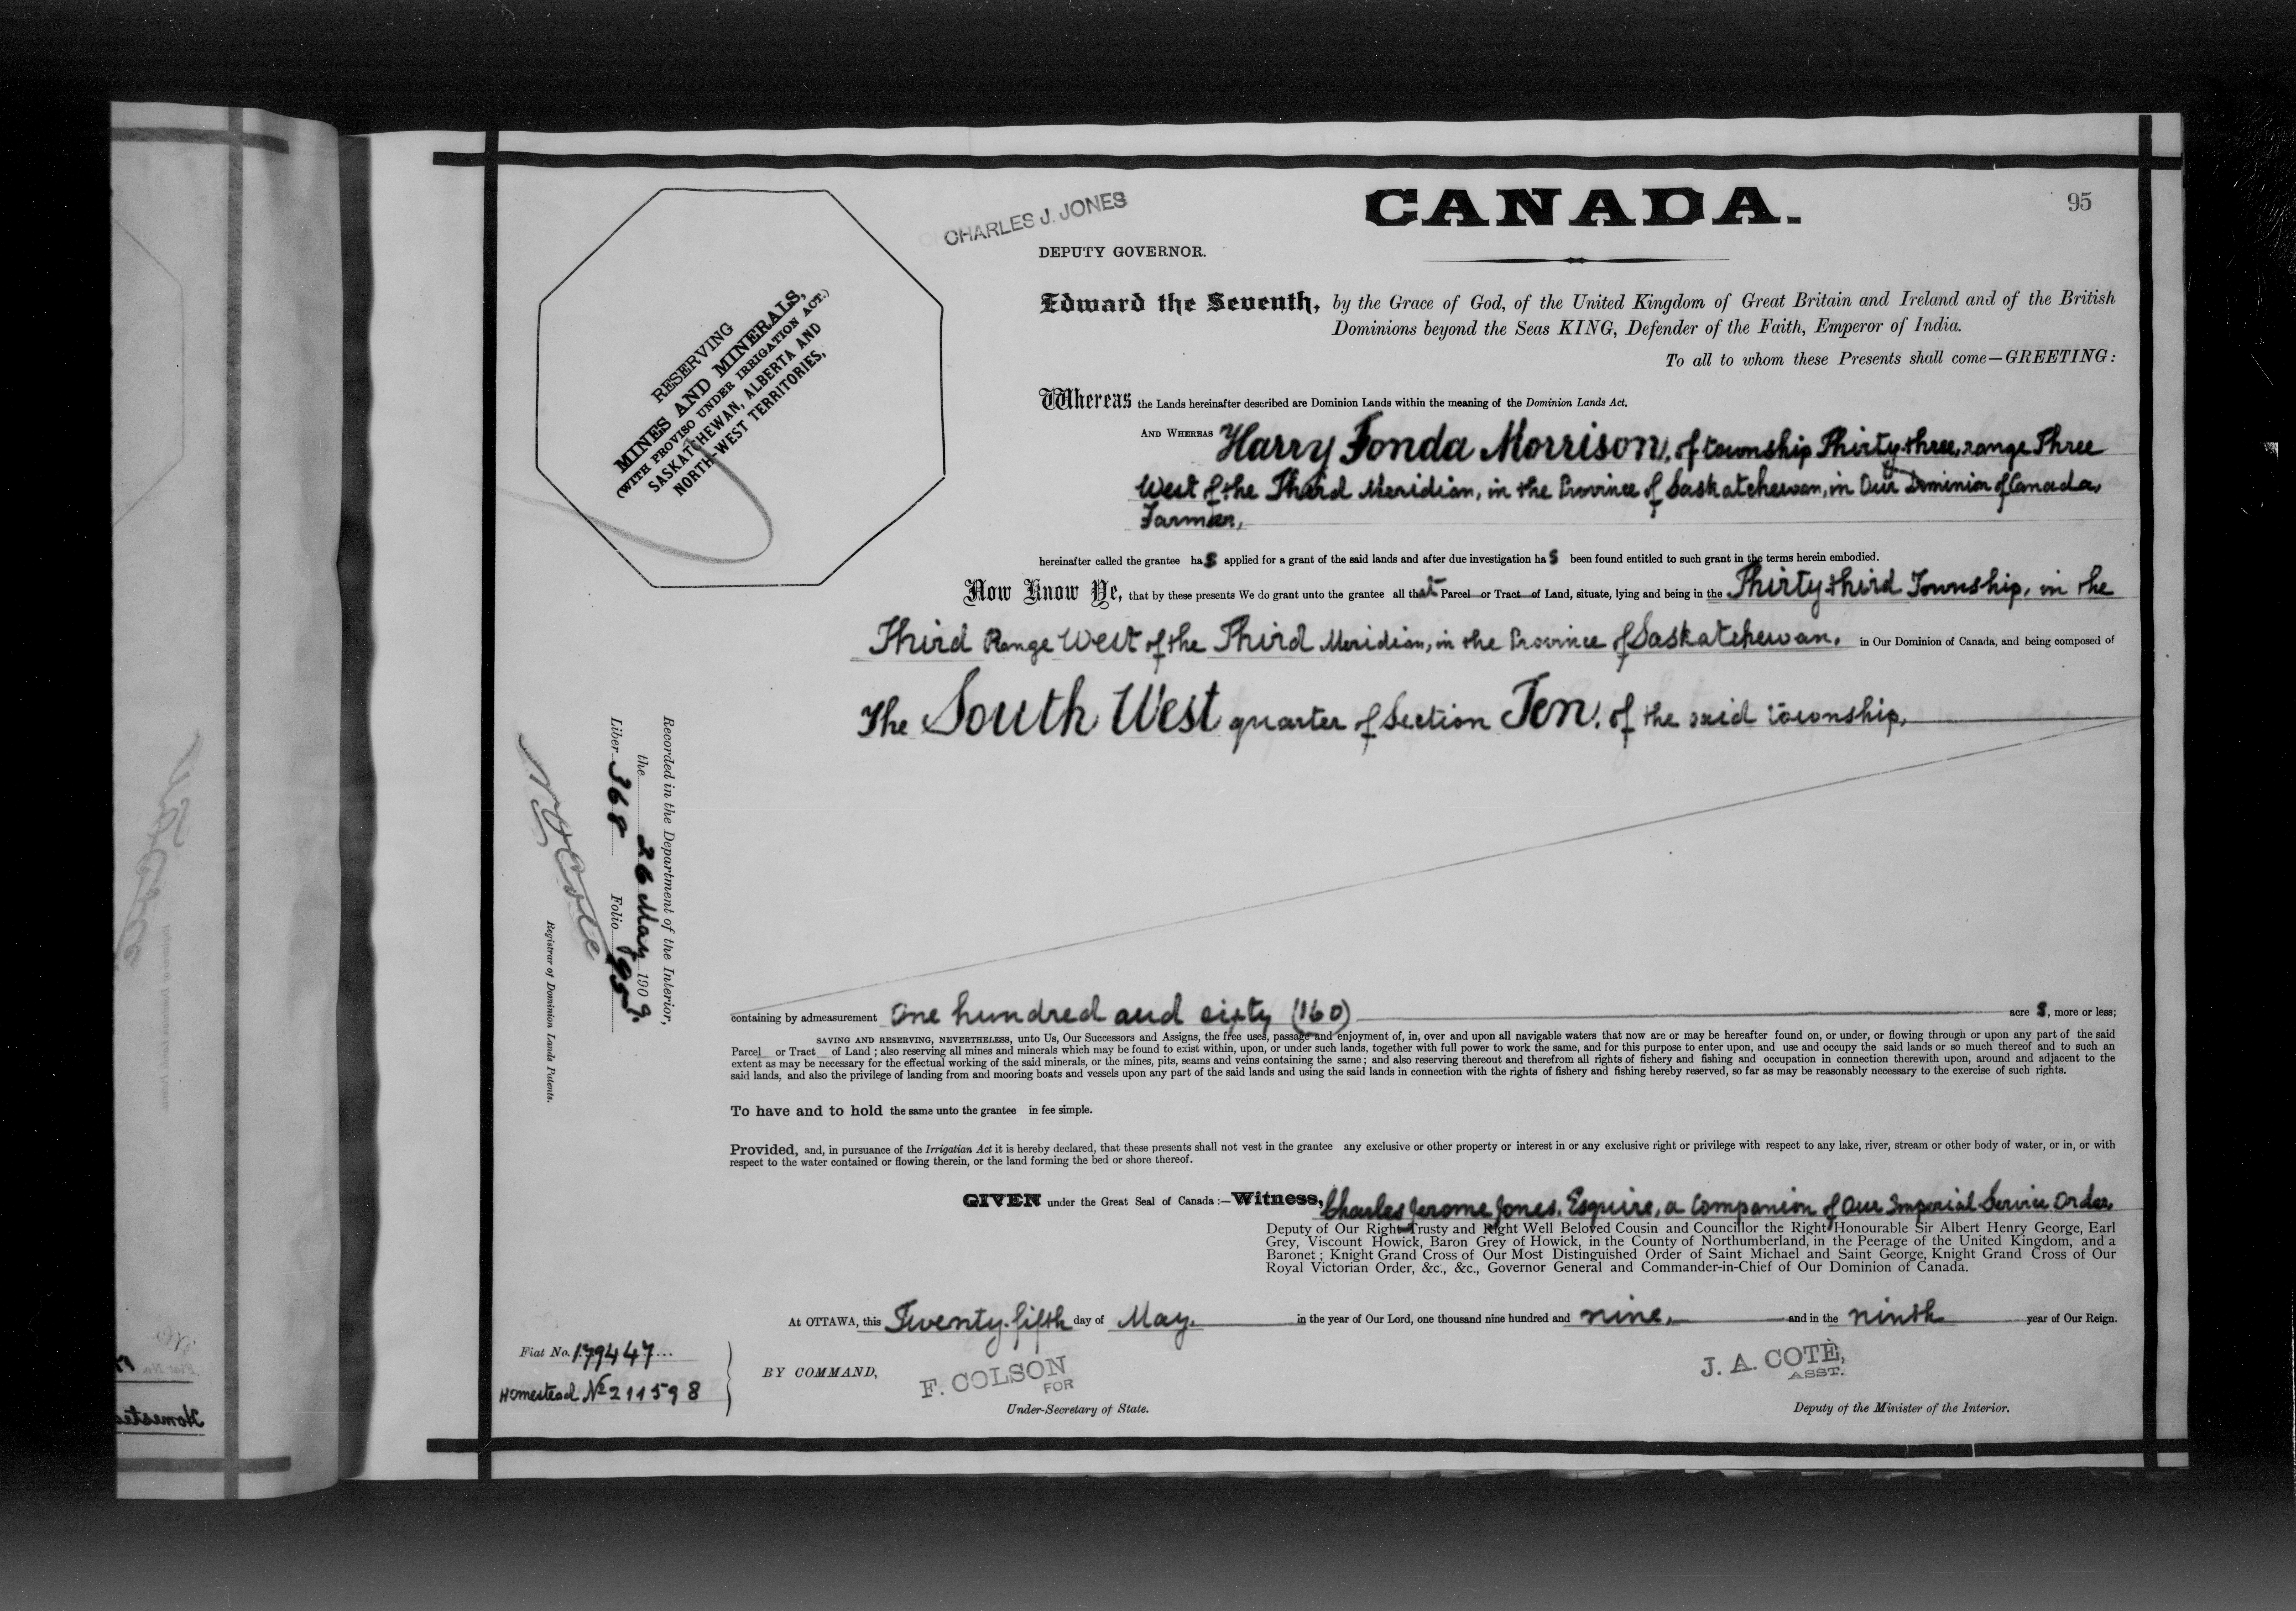 CHARLES J. JONES
CANADA.
95
DEPUTY GOVERNOR.
RESERVING
MINES AND MINERALS,
(WITH PROVISO UNDER IRRIGATION ACT.)
SASKATCHEWAN, ALBERTA AND
NORTH-WEST TERRITORIES,
Edward the Seventh, by the Grace of God, of the United Kingdom of Great Britain and Ireland and of the British
Dominions beyond the Seas KING, Defender of the Faith, Emperor of India.
To all to whom these Presents shall come—GREETING:
Whereas the Lands hereinafter described are Dominion Lands within the meaning of the Dominion Lands Act.
AND WHEREAS Harry Fonda Morrison, of township Thirty-three, range Three
West of the Third Meridian, in the Province of Saskatchewan, in Our Dominion of Canada,
Farmer,
hereinafter called the grantee has applied for a grant of the said lands and after due investigation has been found entitled to such grant in the terms herein embodied.
Now Know Ye, that by these presents We do grant unto the grantee all that Parcel or Tract of Land, situate, lying and being in the Thirty-third Township, in the
Third Range West of the Third Meridian, in the Province of Saskatchewan, in Our Dominion of Canada, and being composed of
The South West quarter of Section Ten, of the said township,
Recorded in the Department of the Interior,
the 26 May 1909.
Liber 368 Folio 95
N O Coté
Registrar of Dominion Lands Patents.
containing by admeasurement One hundred and sixty (160) acre s, more or less;
SAVING AND RESERVING, NEVERTHELESS, unto Us, Our Successors and Assigns, the free uses, passage and enjoyment of, in, over and upon all navigable waters that now are or may be hereafter found on, or under, or flowing through or upon any part of the said
Parcel or Tract of Land; also reserving all mines and minerals which may be found to exist within, upon, or under such lands, together with full power to work the same, and for this purpose to enter upon, and use and occupy the said lands or so much thereof and to such an
extent as may be necessary for the effectual working of the said minerals, or the mines, pits, seams and veins containing the same; and also reserving thereout and therefrom all rights of fishery and fishing and occupation in connection therewith upon, around and adjacent to the
said lands, and also the privilege of landing from and mooring boats and vessels upon any part of the said lands and using the said lands in connection with the rights of fishery and fishing hereby reserved, so far as may be reasonably necessary to the exercise of such rights.
To have and to hold the same unto the grantee in fee simple.
Provided, and, in pursuance of the Irrigatian Act it is hereby declared, that these presents shall not vest in the grantee any exclusive or other property or interest in or any exclusive right or privilege with respect to any lake, river, stream or other body of water, or in, or with
respect to the water contained or flowing therein, or the land forming the bed or shore thereof.
GIVEN under the Great Seal of Canada:—Witness, Charles Jerome Jones, Esquire, a Companion of Our Imperial Service Order,
Deputy of Our Right Trusty and Right Well Beloved Cousin and Councillor the Right Honourable Sir Albert Henry George, Earl
Grey, Viscount Howick, Baron Grey of Howick, in the County of Northumberland, in the Peerage of the United Kingdom, and a
Baronet; Knight Grand Cross of Our Most Distinguished Order of Saint Michael and Saint George, Knight Grand Cross of Our
Royal Victorian Order, &c., &c., Governor General and Commander-in-Chief of Our Dominion of Canada.
At OTTAWA, this Twenty-fifth day of May, in the year of Our Lord, one thousand nine hundred and nine, and in the ninth year of Our Reign.
Fiat No. 179447
Homestead No 211598
BY COMMAND,
F. COLSON
FOR
Under-Secretary of State.
J. A. COTÉ,
ASST.
Deputy of the Minister of the Interior.